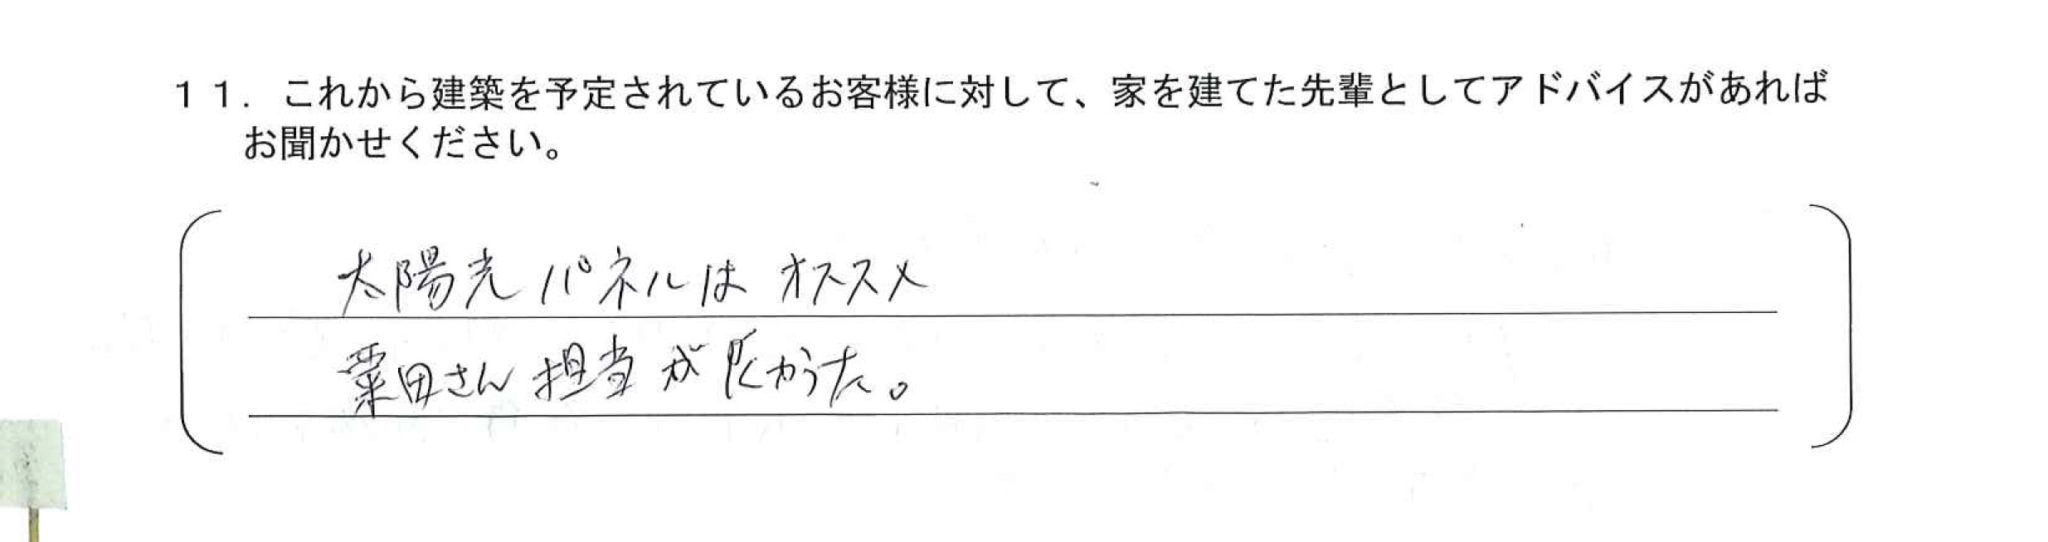 １１．これから建築を予定されているお客様に対して、家を建てた先輩としてアドバイスがあれば
お聞かせください。
太陽光パネルはオススメ
粟田さん担当が良かった。